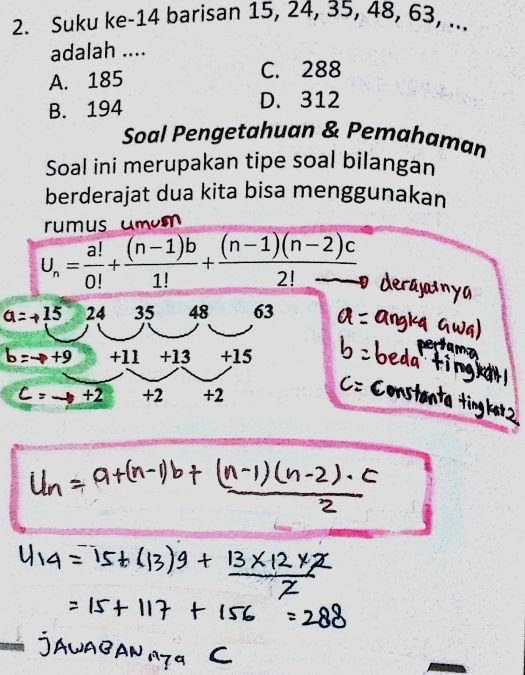 2. Suku ke-14 barisan 15, 24, 35, 48, 63, ...
adalah ....
A. 185 C. 288
B. 194 D. 312
Soal Pengetahuan & Pemahaman
Soal ini merupakan tipe soal bilangan
berderajat dua kita bisa menggunakan
rumus umum
Uₙ = a!/0! + (n−1)b/1! + (n−1)(n−2)c/2! → derajatnya
a = → 15 24 35 48 63
a = angka awal
b = → +9 +11 +13 +15
b = beda pertama tingkat 1
c = → +2 +2 +2
c = constanta tingkat 2
Un = a+(n-1)b + (n-1)(n-2).c/2
U14 = 15 + (13)9 + 13 x 12 x 2/2
= 15 + 117 + 156 = 288
JAWABANnya C